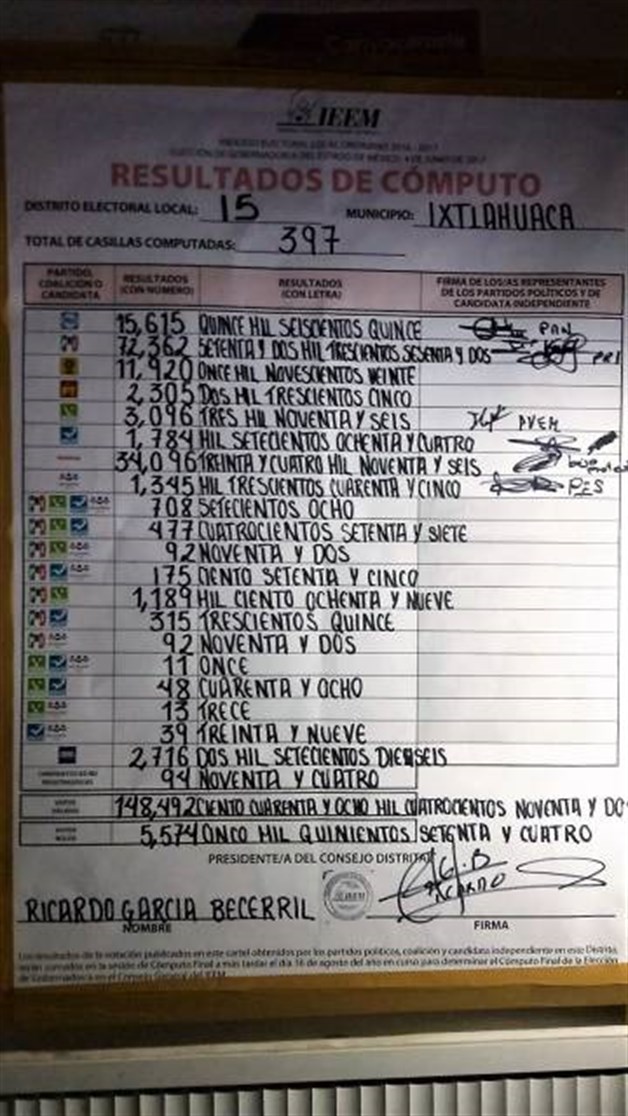 IEEM
PROCESO ELECTORAL LOCAL ORDINARIO 2016 - 2017
ELECCIÓN DE GOBERNADOR/A DEL ESTADO DE MÉXICO, 4 DE JUNIO DE 2017
RESULTADOS DE CÓMPUTO
DISTRITO ELECTORAL LOCAL: 15 MUNICIPIO: IXTLAHUACA
TOTAL DE CASILLAS COMPUTADAS: 397
PARTIDO, COALICIÓN O CANDIDATA RESULTADOS (CON NÚMERO) RESULTADOS (CON LETRA) FIRMA DE LOS/AS REPRESENTANTES DE LOS PARTIDOS POLÍTICOS Y DE CANDIDATA INDEPENDIENTE
15,615 QUINCE MIL SEISCIENTOS QUINCE PAN
72,362 SETENTA Y DOS MIL TRESCIENTOS SESENTA Y DOS PRI
11,920 ONCE MIL NOVESCIENTOS VEINTE
PT 2,305 DOS MIL TRESCIENTOS CINCO
3,096 TRES MIL NOVENTA Y SEIS PVEM
1,784 MIL SETECIENTOS OCHENTA Y CUATRO
34,096 TREINTA Y CUATRO MIL NOVENTA Y SEIS
1,345 MIL TRESCIENTOS CUARENTA Y CINCO PES
708 SETECIENTOS OCHO
477 CUATROCIENTOS SETENTA Y SIETE
92 NOVENTA Y DOS
175 CIENTO SETENTA Y CINCO
1,189 MIL CIENTO OCHENTA Y NUEVE
315 TRESCIENTOS QUINCE
92 NOVENTA Y DOS
11 ONCE
48 CUARENTA Y OCHO
13 TRECE
39 TREINTA Y NUEVE
2,716 DOS MIL SETECIENTOS DIESEIS
CANDIDATOS/AS NO REGISTRADOS/AS 94 NOVENTA Y CUATRO
VOTOS VÁLIDOS 148,492 CIENTO CUARENTA Y OCHO MIL CUATROCIENTOS NOVENTA Y DO
VOTOS NULOS 5,574 CINCO MIL QUINIENTOS SETENTA Y CUATRO
PRESIDENTE/A DEL CONSEJO DISTRITAL
G.B
RICARDO
RICARDO GARCIA BECERRIL
NOMBRE FIRMA
Los resultados de la votación publicados en este cartel obtenidos por los partidos políticos, coalición y candidata independiente en este Distrito,
serán sumados en la sesión de Cómputo Final a más tardar el día 16 de agosto del año en curso para determinar el Cómputo Final de la Elección
de Gobernador/a en el Consejo General del IEEM.